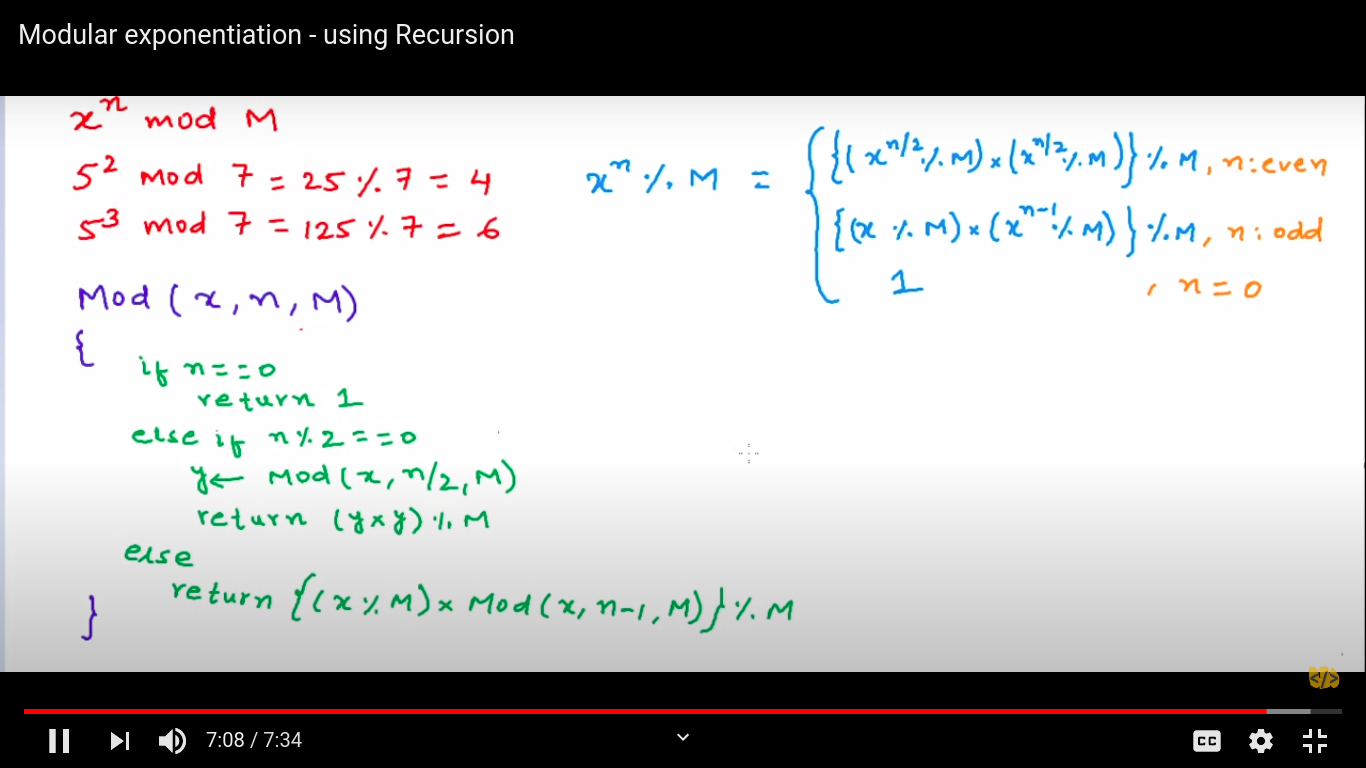 Modular exponentiation - using Recursion
xⁿ mod M
5² mod 7 = 25 % 7 = 4
5³ mod 7 = 125 % 7 = 6
xⁿ % M = { {(x^(n/2) % M) × (x^(n/2) % M)} % M, n: even
{(x % M) × (x^(n-1) % M)} % M, n: odd
1 , n = 0
Mod (x, n, M)
{
if n == 0
return 1
else if n % 2 == 0
y ← Mod (x, n/2, M)
return (y × y) % M
else
return {(x % M) × Mod (x, n-1, M)} % M
}
</>
7:08 / 7:34
CC